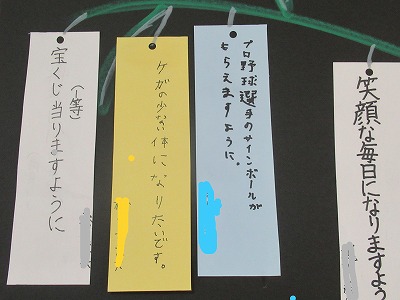 宝くじ当りますように
(1等)
ケガの少ない体になりたいです。
プロ野球選手のサインボールが
もらえますように。
笑顔な毎日になりますよう